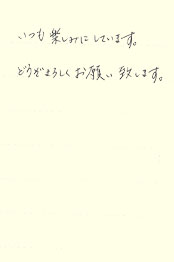 いつも楽しみにしています。
どうぞよろしくお願い致します。